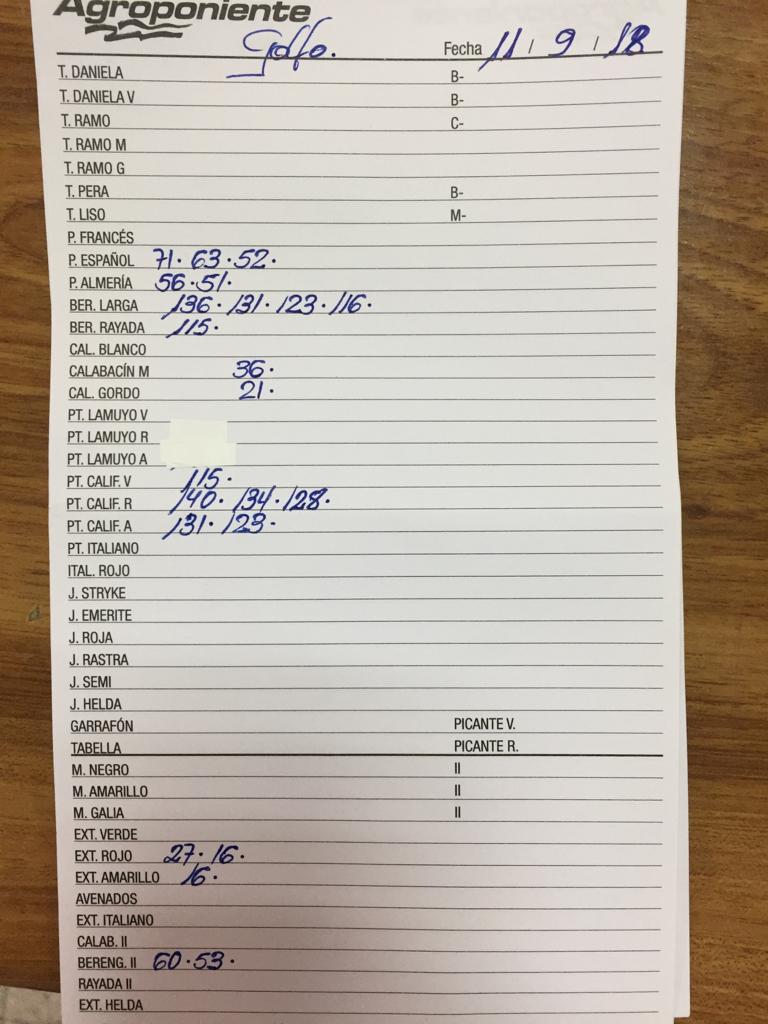 Agroponiente
Golfo. Fecha 11 / 9 / 18
T. DANIELA B-
T. DANIELA V B-
T. RAMO C-
T. RAMO M
T. RAMO G
T. PERA B-
T. LISO M-
P. FRANCÉS
P. ESPAÑOL 71. 63. 52.
P. ALMERÍA 56. 51.
BER. LARGA 136. 131. 123. 116.
BER. RAYADA 115.
CAL. BLANCO
CALABACÍN M 36.
CAL. GORDO 21.
PT. LAMUYO V
PT. LAMUYO R
PT. LAMUYO A
PT. CALIF. V 115.
PT. CALIF. R 140. 134. 128.
PT. CALIF. A 131. 123.
PT. ITALIANO
ITAL. ROJO
J. STRYKE
J. EMERITE
J. ROJA
J. RASTRA
J. SEMI
J. HELDA
GARRAFÓN PICANTE V.
TABELLA PICANTE R.
M. NEGRO II
M. AMARILLO II
M. GALIA II
EXT. VERDE
EXT. ROJO 27. 16.
EXT. AMARILLO 16.
AVENADOS
EXT. ITALIANO
CALAB. II
BERENG. II 60. 53.
RAYADA II
EXT. HELDA